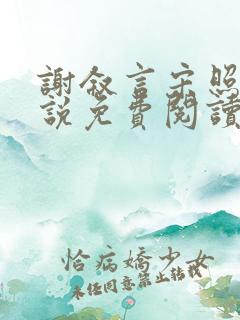 謝叙言宋照
說免費閱讀
恰病嬌少女
未经同意禁止转载